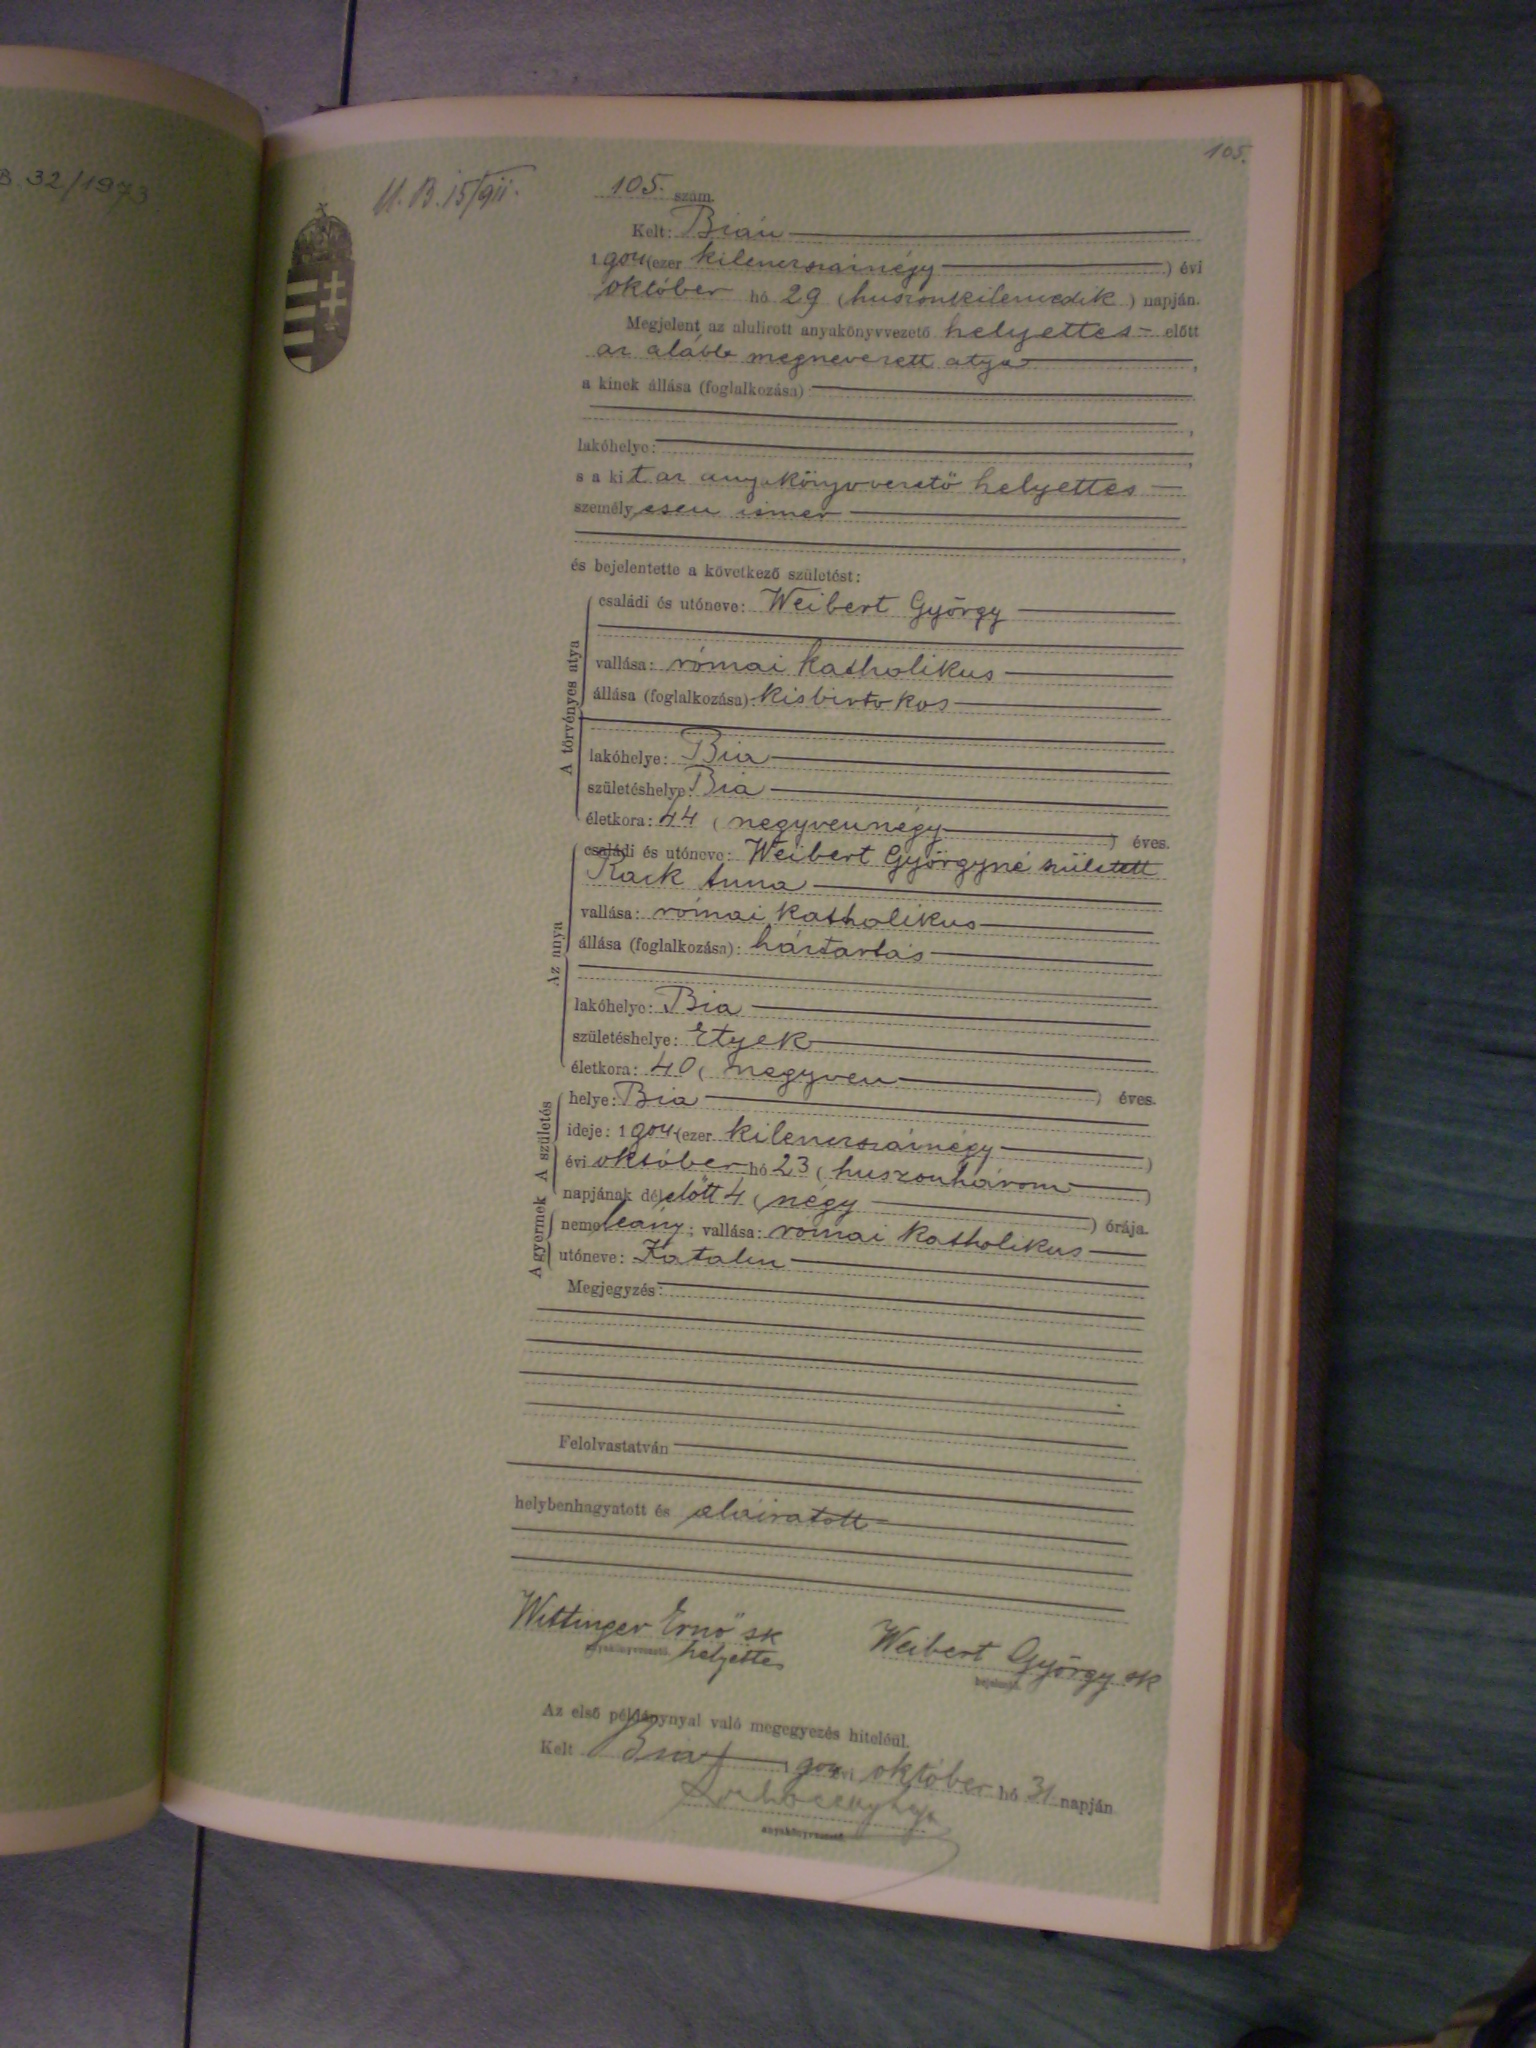 B. 32/1973
105.
105. szám.
Kelt: Bián
1904 (ezer kilencszáznégy) évi
október hó 29 (huszonkilencedik) napján.
Megjelent az alulirott anyakönyvvezető helyettes előtt
az alább megnevezett atya,
a kinek állása (foglalkozása)
lakóhelye:
s a kit az anyakönyvvezető helyettes
személyesen ismer
és bejelentette a következő születést:
A törvényes atya
családi és utóneve: Weibert György
vallása: római katholikus
állása (foglalkozása): kisbirtokos
lakóhelye: Bia
születéshelye: Bia
életkora: 44 (negyvennégy) éves.
Az anya
családi és utóneve: Weibert Györgyné született
Rack Anna
vallása: római katholikus
állása (foglalkozása): háztartás
lakóhelye: Bia
születéshelye: Etyek
életkora: 40 (negyven) éves.
A születés
helye: Bia
ideje: 1904 (ezer kilencszáznégy)
évi október hó 23 (huszonhárom)
napjának délelőtt 4 (négy) órája.
A gyermek
neme: leány; vallása: római katholikus
utóneve: Katalin
Megjegyzés:
Felolvastatván
helybenhagyatott és aláiratott
Wittinger Ernő sk Weibert György sk
anyakönyvvezető helyettes bejelentő
Az első példánynyal való megegyezés hiteléül.
Kelt Bia 1904 évi október hó 31 napján
anyakönyvvezető